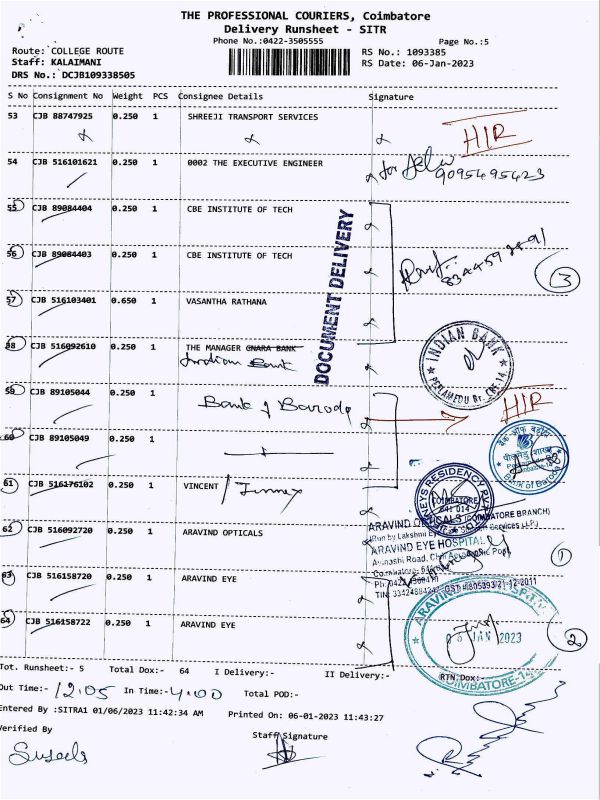 THE PROFESSIONAL COURIERS, Coimbatore
Delivery Runsheet - SITR
Phone No.:0422-3505555 Page No.:5
Route: COLLEGE ROUTE RS No.: 1093385
Staff: KALAIMANI RS Date: 06-Jan-2023
DRS No.: DCJB109338505
S No Consignment No Weight PCS Consignee Details Signature
53 CJB 88747925 0.250 1 SHREEJI TRANSPORT SERVICES
HIR
54 CJB 516101621 0.250 1 0002 THE EXECUTIVE ENGINEER
9095495423
55 CJB 89084404 0.250 1 CBE INSTITUTE OF TECH
DOCUMENT DELIVERY
56 CJB 89084403 0.250 1 CBE INSTITUTE OF TECH
3
57 CJB 516103401 0.650 1 VASANTHA RATHANA
58 CJB 516092610 0.250 1 THE MANAGER CNARA BANK
Indian Bank
INDIAN BANK
59 CJB 89105044 0.250 1
Bank of Baroda
HIR
60 CJB 89105049 0.250 1
बैंक ऑफ बड़ौदा
Bank of Baroda
61 CJB 516176102 0.250 1 VINCENT
COIMBATORE
641 014
ARAVIND OPTICALS (COIMBATORE BRANCH)
62 CJB 516092720 0.250 1 ARAVIND OPTICALS
ARAVIND EYE HOSPITAL
1
63 CJB 516158720 0.250 1 ARAVIND EYE
64 CJB 516158722 0.250 1 ARAVIND EYE
06 JAN 2023
COIMBATORE-14
2
Tot. Runsheet:- 5 Total Dox:- 64 I Delivery:- II Delivery:- RTN.Dox:-
Out Time:- 12.05 In Time:- 4.00 Total POD:-
Entered By :SITRA1 01/06/2023 11:42:34 AM Printed On: 06-01-2023 11:43:27
Verified By Staff Signature